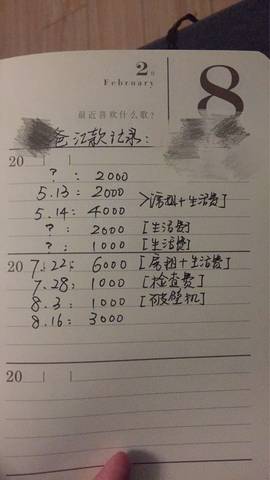 2月
February
8
最近喜欢什么歌?
爸汇款记录:
20
?: 2000
5.13: 2000
>房租+生活费]
5.14: 4000
?: 2000 [生活费]
?: 1000 [生活费]
20 7.22: 6000 [房租+生活费]
7.28: 1000 [检查费]
8.3: 1000 [破壁机]
8.16: 3000
20